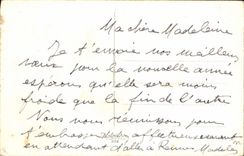 Ma chère Madeleine
Je t'envoie nos meilleurs
vœux pour la nouvelle année
espérons qu'elle sera moins
froide que la fin de l'autre
Nous nous réunissons pour
t'embrasser affectueusement
en attendant d'aller à Rennes Madeleine